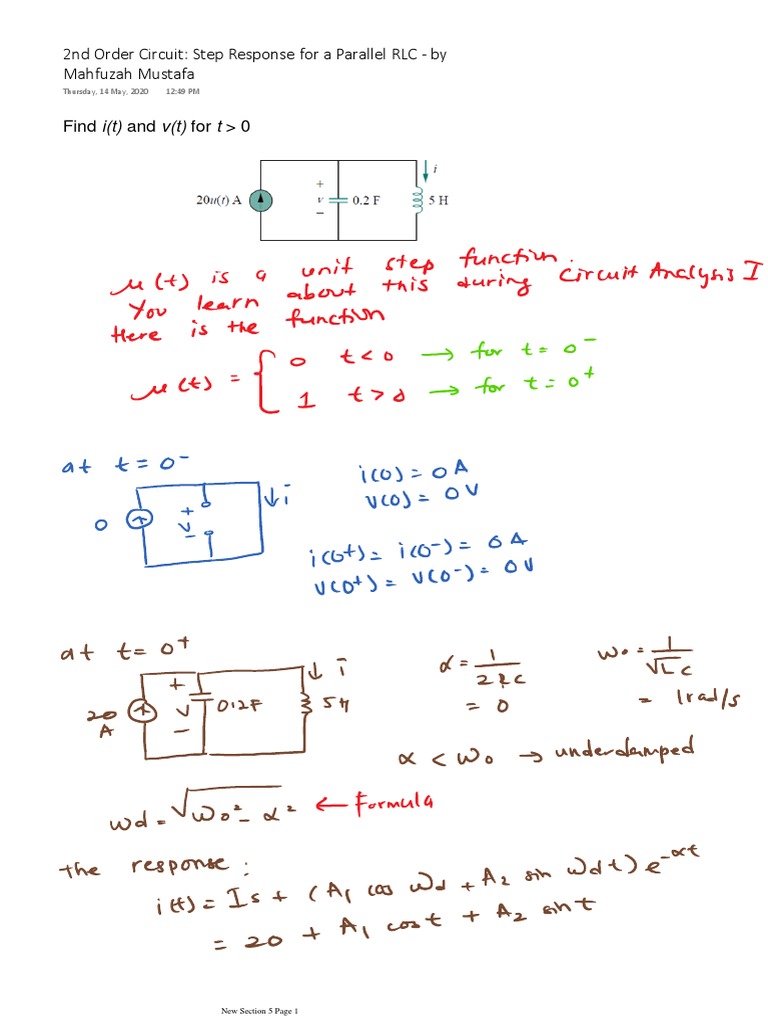 2nd Order Circuit: Step Response for a Parallel RLC - by
Mahfuzah Mustafa
Thursday, 14 May, 2020 12:49 PM
Find i(t) and v(t) for t > 0
20u(t) A
+
v
−
0.2 F
i
5 H
u(t) is a unit step function.
You learn about this during Circuit Analysis I
Here is the function
u(t) = { 0 t<0 → for t = 0⁻
1 t>0 → for t = 0⁺
at t = 0⁻
0
+
v
−
↓ i
i(0) = 0 A
v(0) = 0 V
i(0⁺) = i(0⁻) = 0 A
v(0⁺) = v(0⁻) = 0 V
at t = 0⁺
20
A
+
v
−
0.2F
↓ i
5H
α = 1/2RC
= 0
ω₀ = 1/√LC
= 1 rad/s
α < ω₀ → underdamped
ωd = √ω₀² − α² ← Formula
the response :
i(t) = Is + (A₁ cos ωd + A₂ sin ωdt) e^-αt
= 20 + A₁ cos t + A₂ sin t
New Section 5 Page 1